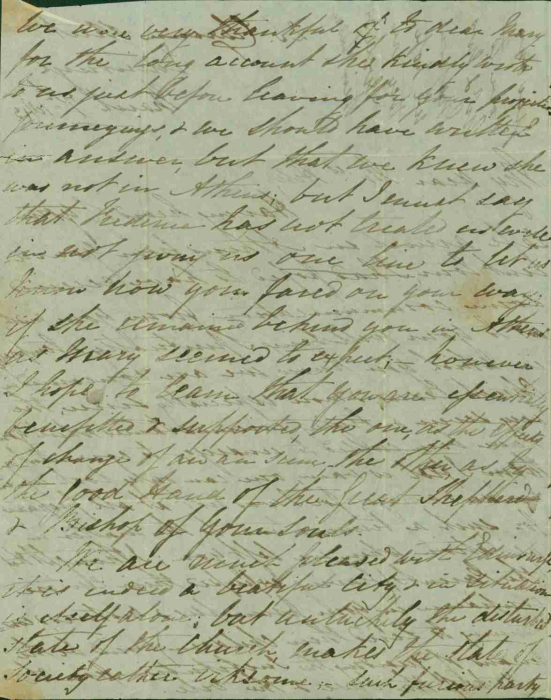 We were very thankful to dear Mary
for the long account she kindly wrote
to us just before leaving for your projected
journeyings, & we should have written
in answer but that we knew she
was not in Athens; but I must say
that has not treated us well
in not giving us one line to let us
know how you fared on your way,
if she remained behind you in Athens
as Mary seemed to expect; – however
I hope to learn that you are
benefitted & supported, the one, the effects
of change of air the other, as by
the Good Hand of the Great Shepherd
& Bishop of your souls.
We are much pleased with Edinburgh
it is indeed a beautiful city & in situation
is itself alone; but the disturbed
state of the Church, makes the state of
society rather irksome – such furious party